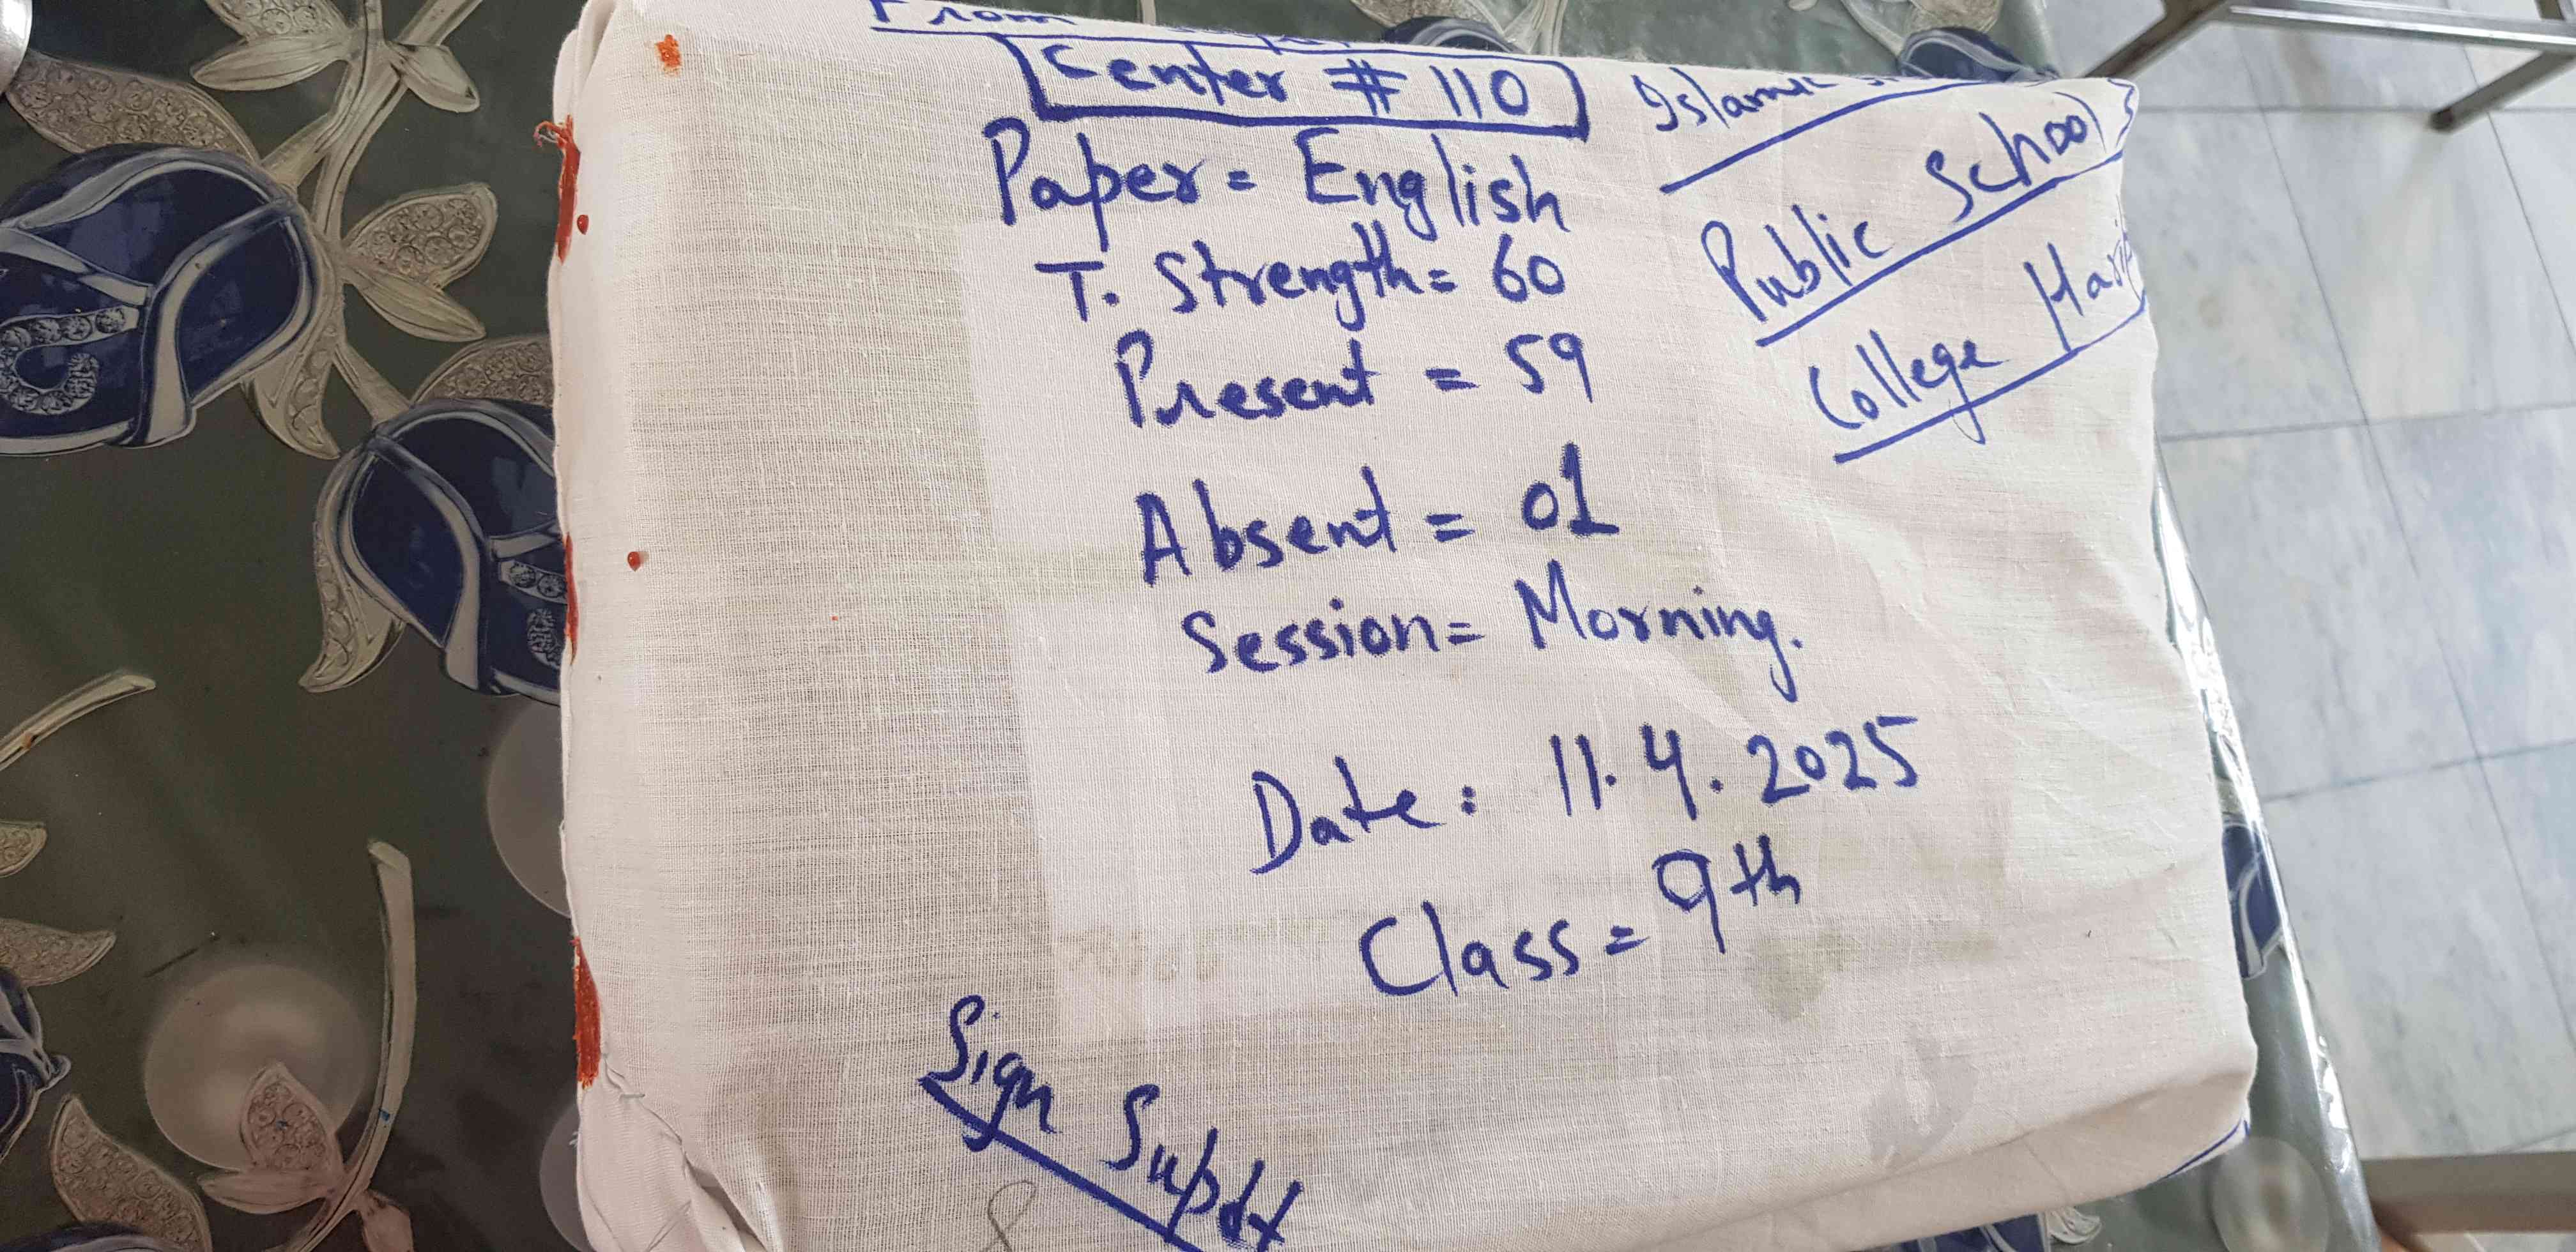 From
Center # 110
Paper = English
T. Strength = 60
Present = 59
Absent = 01
Session = Morning.
Date : 11.4.2025
Class = 9th
Sign Supdt
Islamic
Public School
College